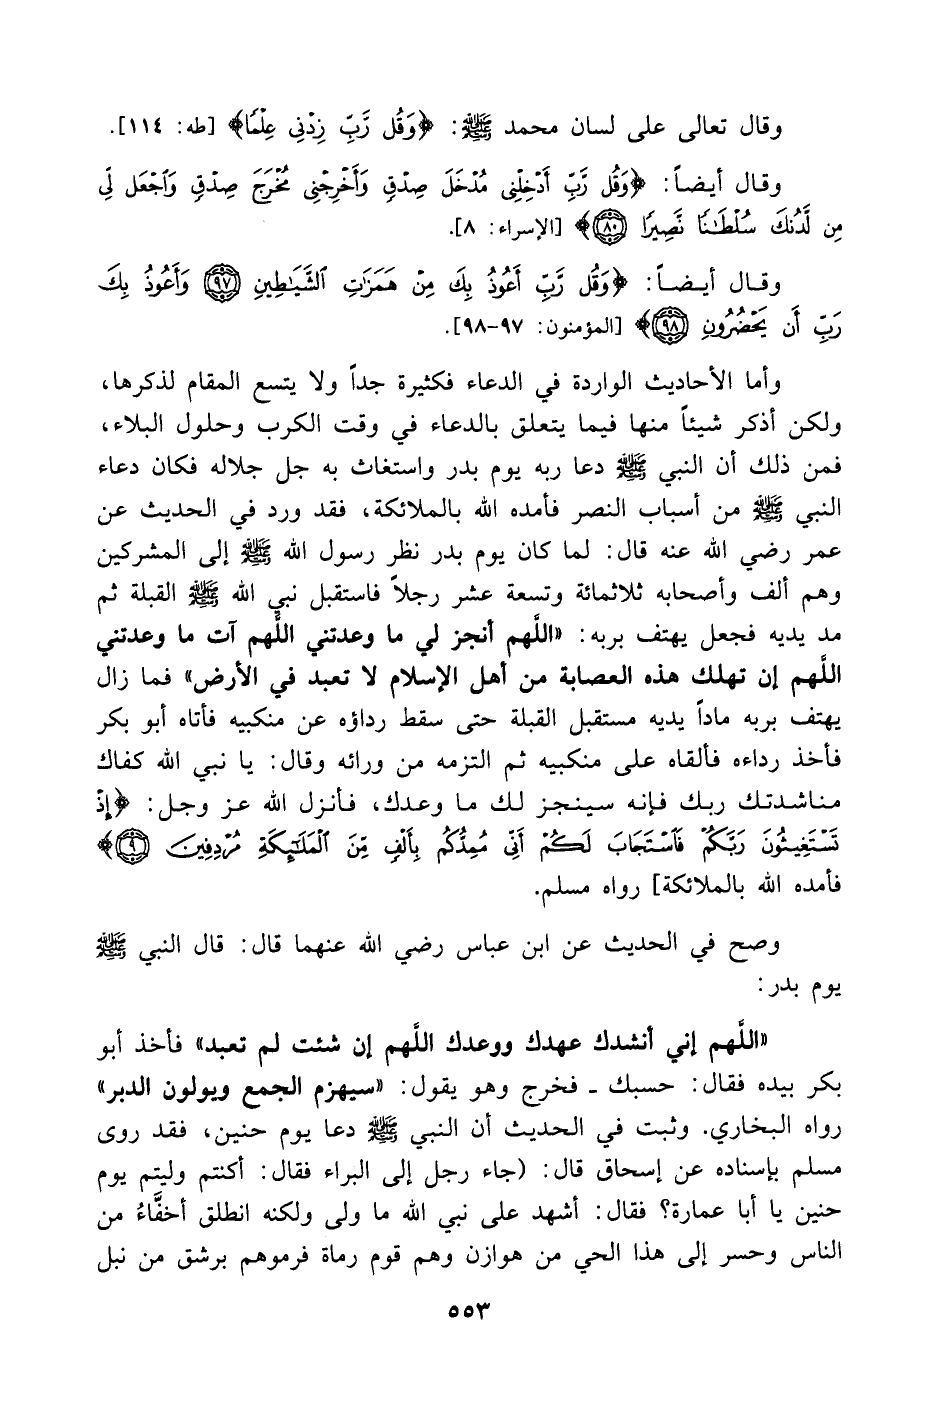 وقال تعالى على لسان محمد ﷺ: ﴿وَقُل رَّبِّ زِدْنِي عِلْمًا﴾ [طه: ١١٤].
وقال أيضاً: ﴿وَقُل رَّبِّ أَدْخِلْنِي مُدْخَلَ صِدْقٍ وَأَخْرِجْنِي مُخْرَجَ صِدْقٍ وَاجْعَل لِّي
مِن لَّدُنكَ سُلْطَانًا نَّصِيرًا ۝٨٠﴾ [الإسراء: ٨].
وقال أيضاً: ﴿وَقُل رَّبِّ أَعُوذُ بِكَ مِنْ هَمَزَاتِ الشَّيَاطِينِ ۝٩٧ وَأَعُوذُ بِكَ
رَبِّ أَن يَحْضُرُونِ ۝٩٨﴾ [المؤمنون: ٩٧-٩٨].
وأما الأحاديث الواردة في الدعاء فكثيرة جداً ولا يتسع المقام لذكرها،
ولكن أذكر شيئاً منها فيما يتعلق بالدعاء في وقت الكرب وحلول البلاء،
فمن ذلك أن النبي ﷺ دعا ربه يوم بدر واستغاث به جل جلاله فكان دعاء
النبي ﷺ من أسباب النصر فأمده الله بالملائكة، فقد ورد في الحديث عن
عمر رضي الله عنه قال: لما كان يوم بدر نظر رسول الله ﷺ إلى المشركين
وهم ألف وأصحابه ثلاثمائة وتسعة عشر رجلاً فاستقبل نبي الله ﷺ القبلة ثم
مد يديه فجعل يهتف بربه: «اللَّهم أنجز لي ما وعدتني اللَّهم آت ما وعدتني
اللَّهم إن تهلك هذه العصابة من أهل الإسلام لا تعبد في الأرض» فما زال
يهتف بربه ماداً يديه مستقبل القبلة حتى سقط رداؤه عن منكبيه فأتاه أبو بكر
فأخذ رداءه فألقاه على منكبيه ثم التزمه من ورائه وقال: يا نبي الله كفاك
مناشدتك ربك فإنه سينجز لك ما وعدك، فأنزل الله عز وجل: ﴿إِذْ
تَسْتَغِيثُونَ رَبَّكُمْ فَاسْتَجَابَ لَكُمْ أَنِّي مُمِدُّكُم بِأَلْفٍ مِّنَ الْمَلَائِكَةِ مُرْدِفِينَ ۝٩﴾
فأمده الله بالملائكة] رواه مسلم.
وصح في الحديث عن ابن عباس رضي الله عنهما قال: قال النبي ﷺ
يوم بدر:
«اللَّهم إني أنشدك عهدك ووعدك اللَّهم إن شئت لم تعبد» فأخذ أبو
بكر بيده فقال: حسبك ـ فخرج وهو يقول: «سيهزم الجمع ويولون الدبر»
رواه البخاري. وثبت في الحديث أن النبي ﷺ دعا يوم حنين، فقد روى
مسلم بإسناده عن إسحاق قال: (جاء رجل إلى البراء فقال: أكنتم وليتم يوم
حنين يا أبا عمارة؟ فقال: أشهد على نبي الله ما ولى ولكنه انطلق أخفَّاءُ من
الناس وحسر إلى هذا الحي من هوازن وهم قوم رماة فرموهم برشق من نبل
٥٥٣